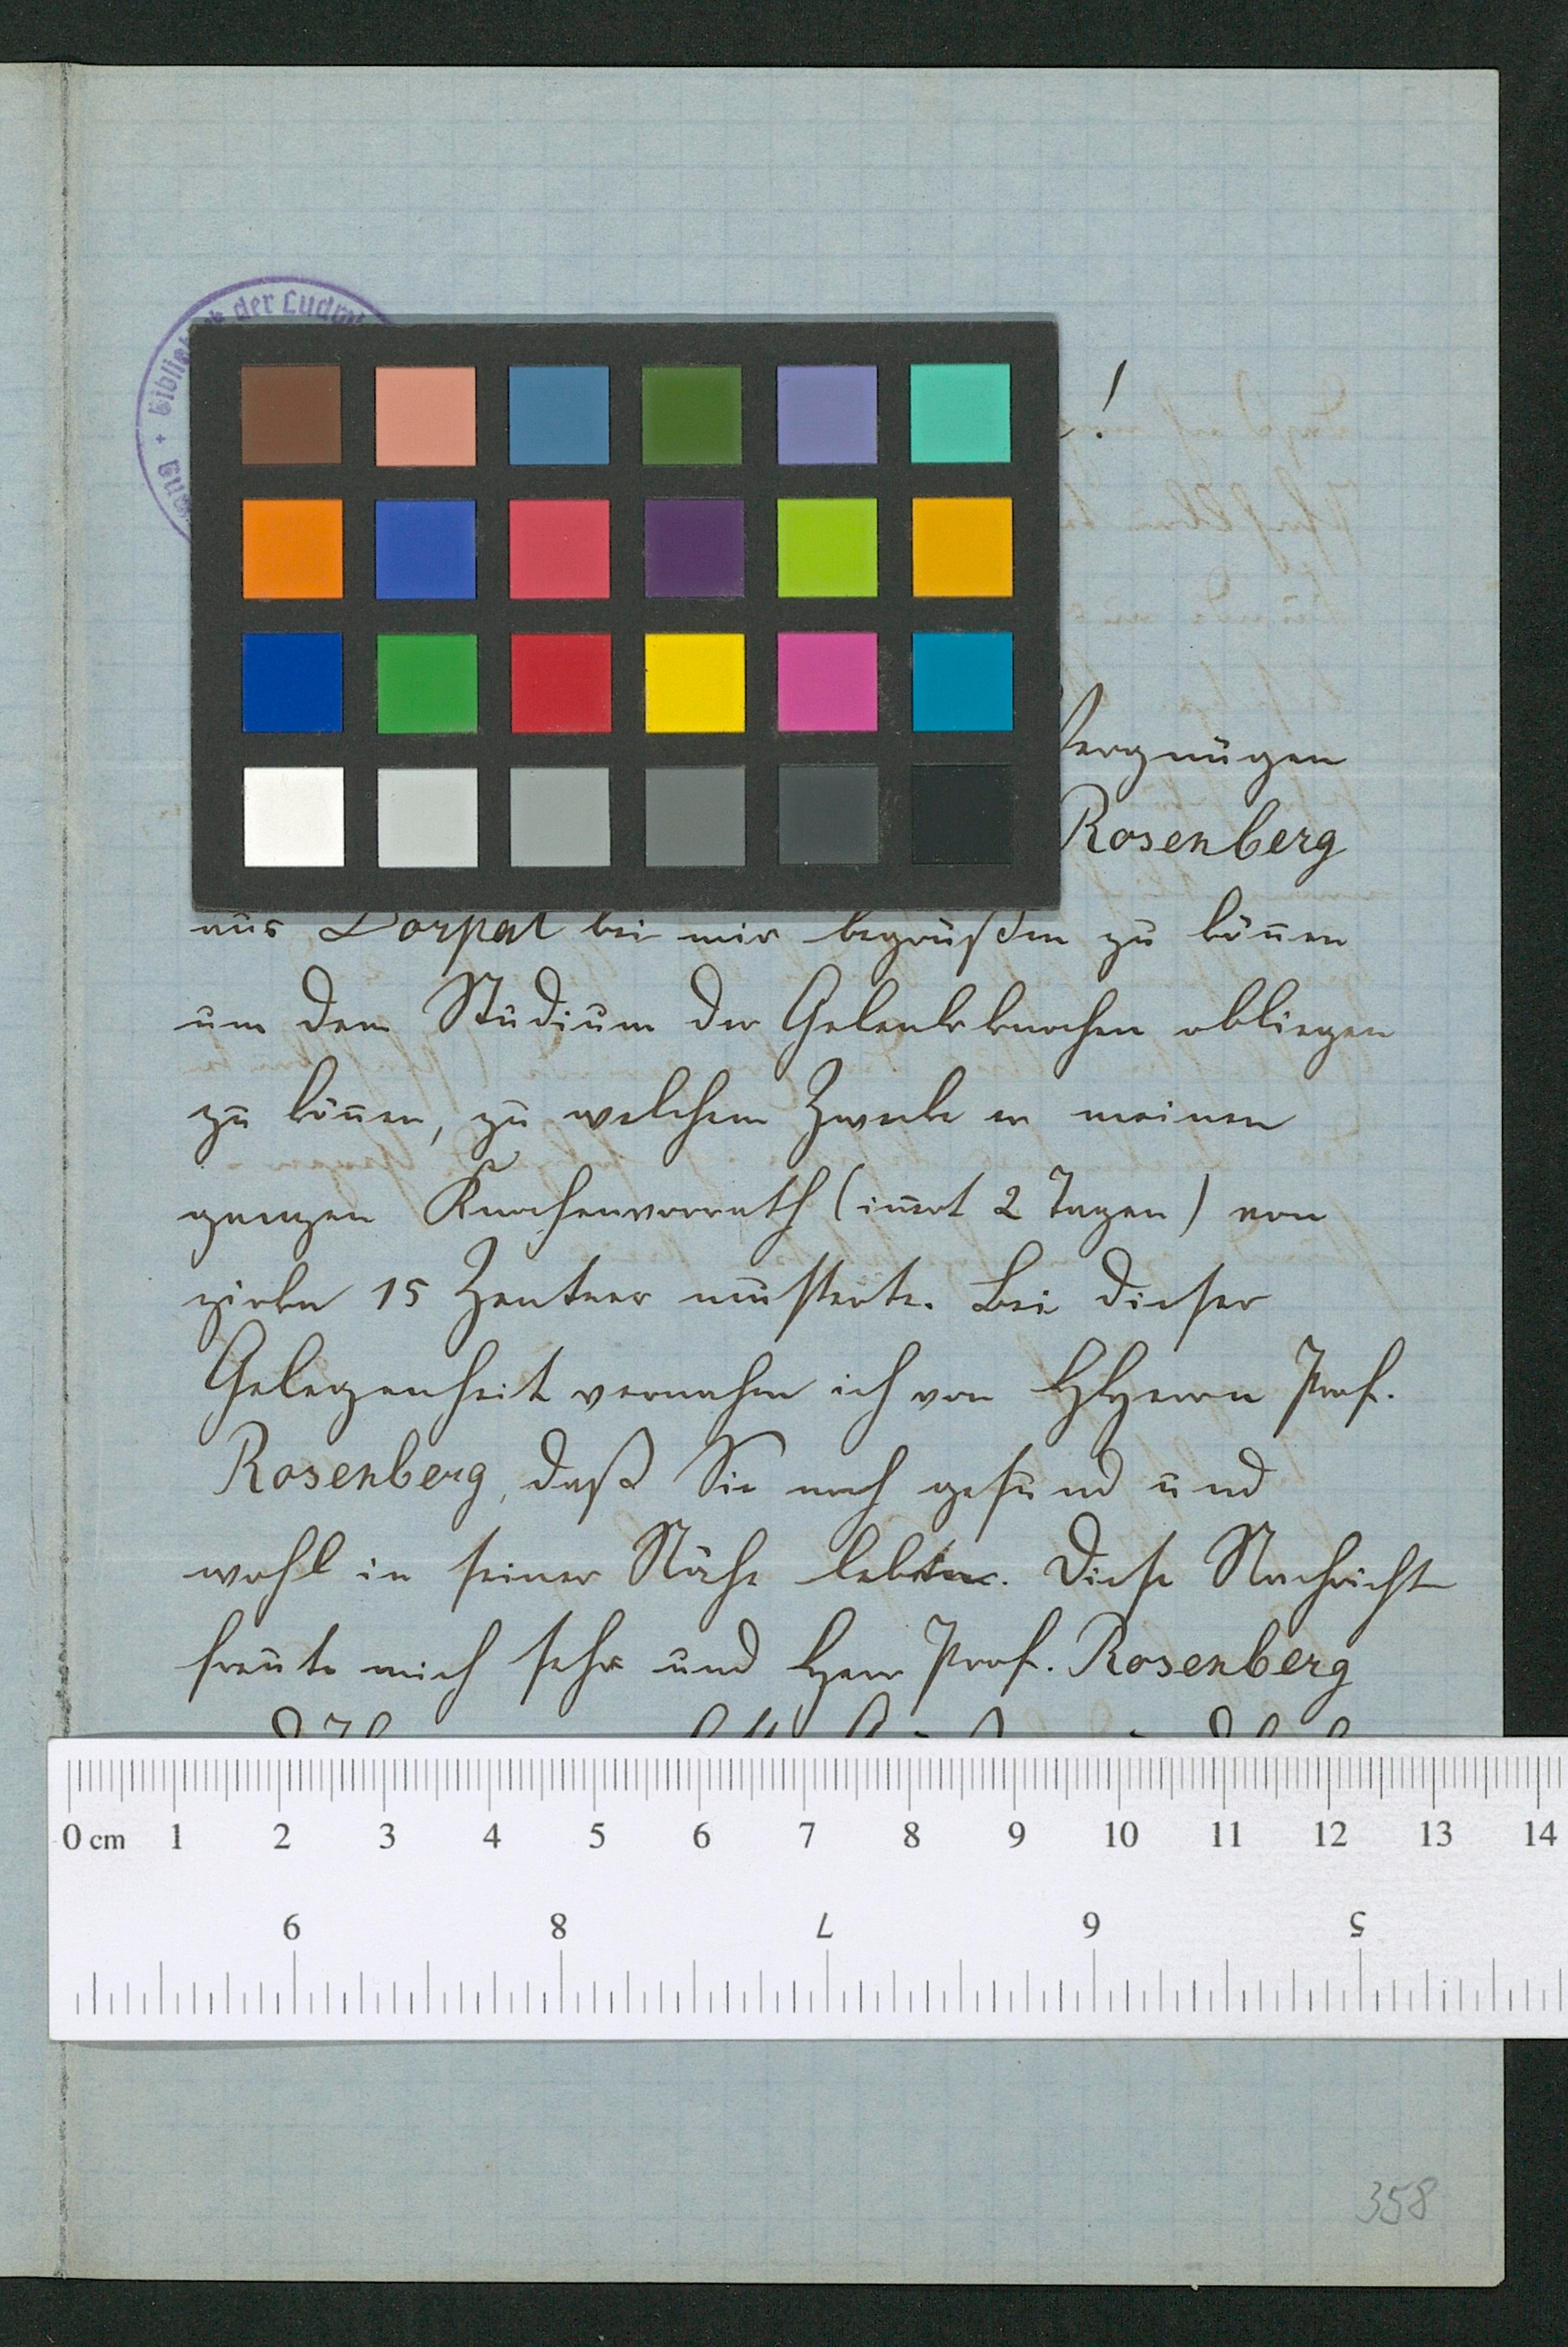 der Ludw
!
Vergnügen
Rosenberg
aus Dorpat bei mir begrüßen zu können
um dem Studium der Gelenkknochen obliegen
zu können, zu welchem Zwecke er meinen
ganzen Knochenvorrath ( 2 Tagen) von
zirka 15 Zentner musterte. Bei dieser
Gelegenheit vernahm ich von Prof.
Rosenberg, daß Sie noch gesund und
wohl in seiner Nähe leben. Diese Nachricht
freute mich sehr und Herr Prof. Rosenberg
0 cm 1 2 3 4 5 6 7 8 9 10 11 12 13 14
9 8 7 6 5
358